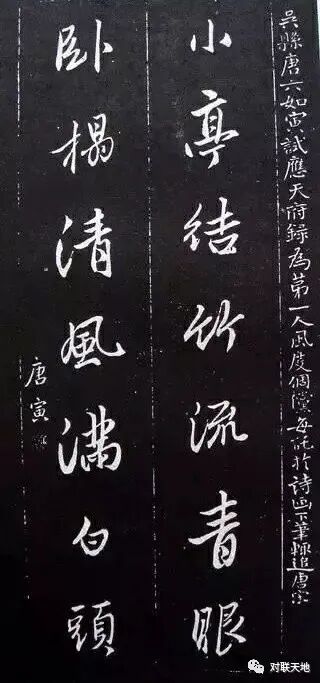 吳縣唐六如寅試應天府録為第一人風度倜儻每託於詩画下筆輒追唐宋
小亭结竹流青眼
卧榻清風滿白頭
唐寅
对联天地